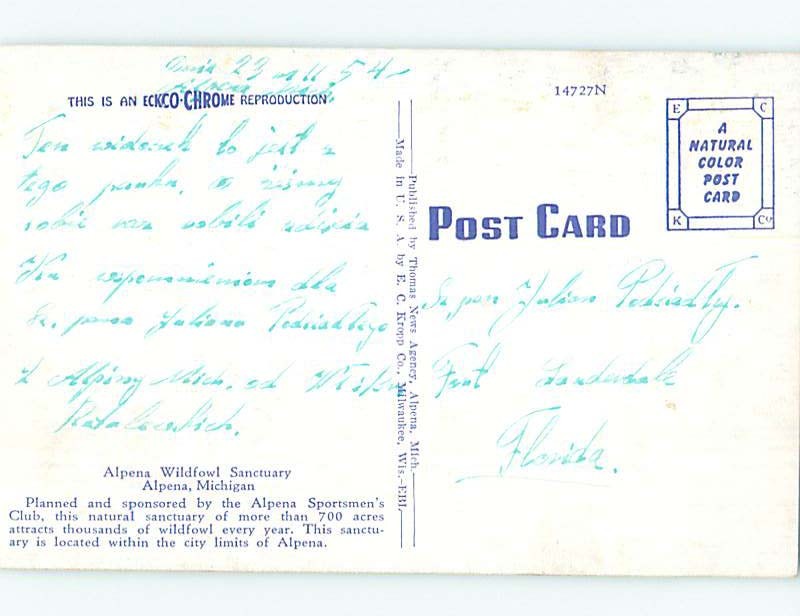 Dnia 23 m 11. 54-
Alpena Mich.
THIS IS AN ECKCO-CHROME REPRODUCTION
Ten widoczek to jest z
tego parku,
robić
Ku wspomnieniom dla
Sz. pana Juliana Podsiadłego
z Alpiny Mich. od
Alpena Wildfowl Sanctuary
Alpena, Michigan
Planned and sponsored by the Alpena Sportsmen's
Club, this natural sanctuary of more than 700 acres
attracts thousands of wildfowl every year. This sanctu-
ary is located within the city limits of Alpena.
Published by Thomas News Agency, Alpena, Mich.
Made in U. S. A. by E. C. Kropp Co., Milwaukee, Wis.-EBL
14727N
E C
A
NATURAL
COLOR
POST
CARD
K Co
POST CARD
Sz pan Julian Podsiadły.
Fort Lauderdale
Florida.